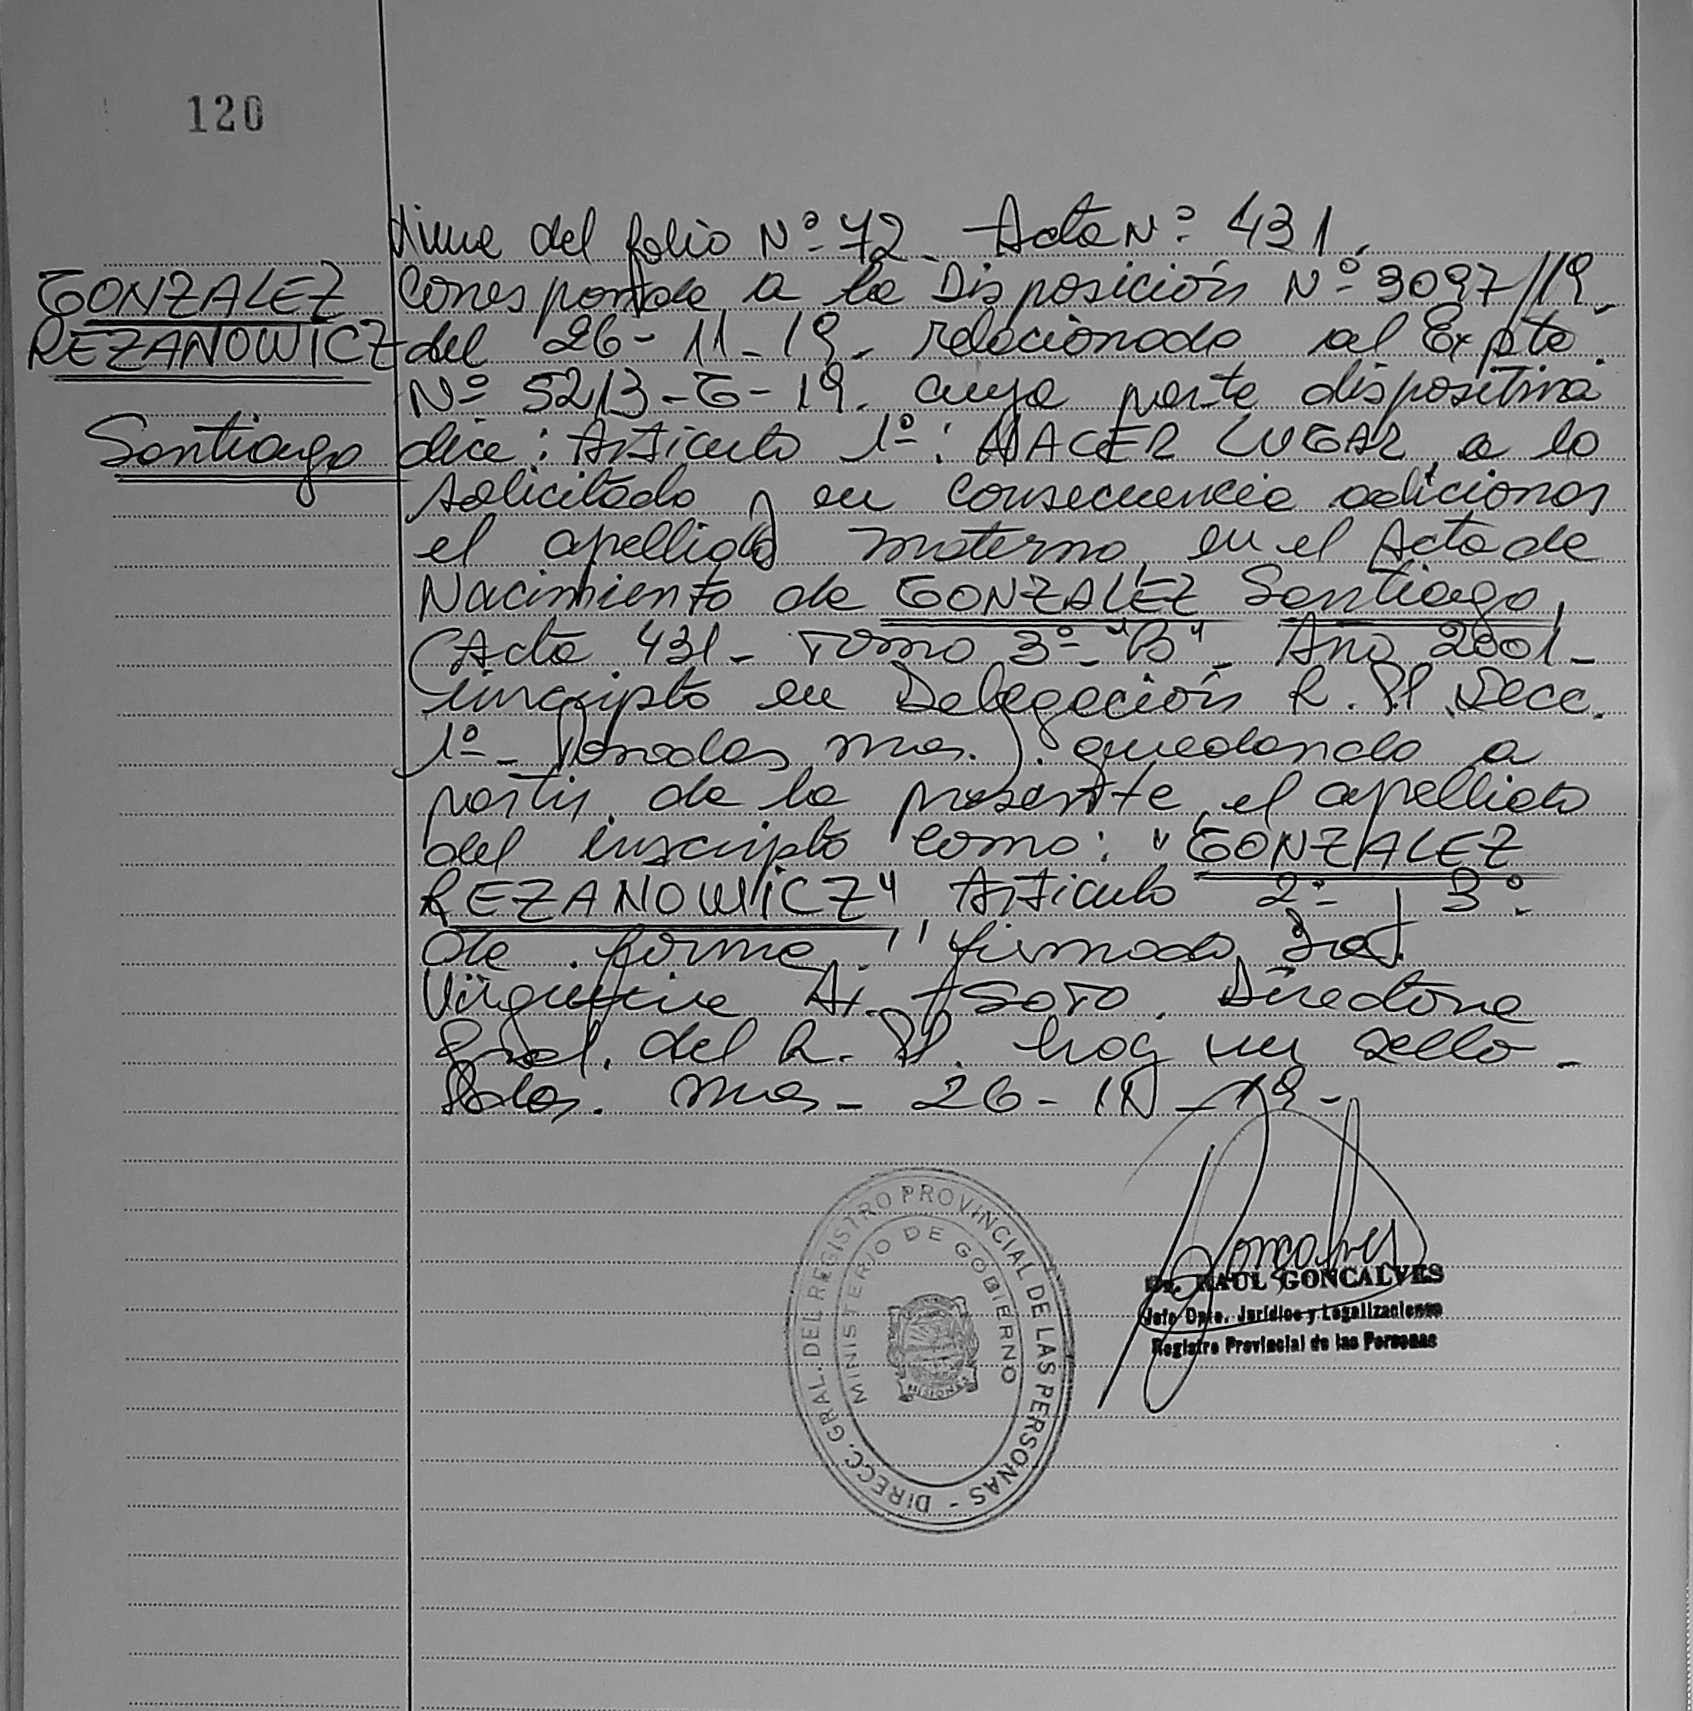 120
Viene del folio Nº 72. Acta Nº 431.
GONZALEZ
REZANOWICZ
Santiago
Corresponde a la Disposición Nº 3097/19.
del 26-11-19. relacionado al Expte.
Nº 5213-G-19. cuya parte dispositiva
dice: Artículo 1º: HACER LUGAR, a lo
solicitado y en consecuencia adicionar
el apellido materno, en el Acta de
Nacimiento de GONZALEZ Santiago,
(Acta 431- Tomo 3º-"B"- Año 2001-
inscripto en Delegación R. P. Secc.
1º- Posadas, mnes.). quedando a
partir de la presente, el apellido
del inscripto como: "GONZALEZ
REZANOWICZ" Artículo 2º y 3º
de forma," firmado, Dra.
A. SOTO. Directora
Gral. del R. P. hay un sello-
Pdas. mnes- 26-
DIRECC. GRAL. DEL REGISTRO PROVINCIAL DE LAS PERSONAS -
MINISTERIO DE GOBIERNO
MISIONES
Goncalves
Dr. RAUL GONCALVES
Jefe Dpto. Jurídico y Legalizaciones
Registro Provincial de las Personas